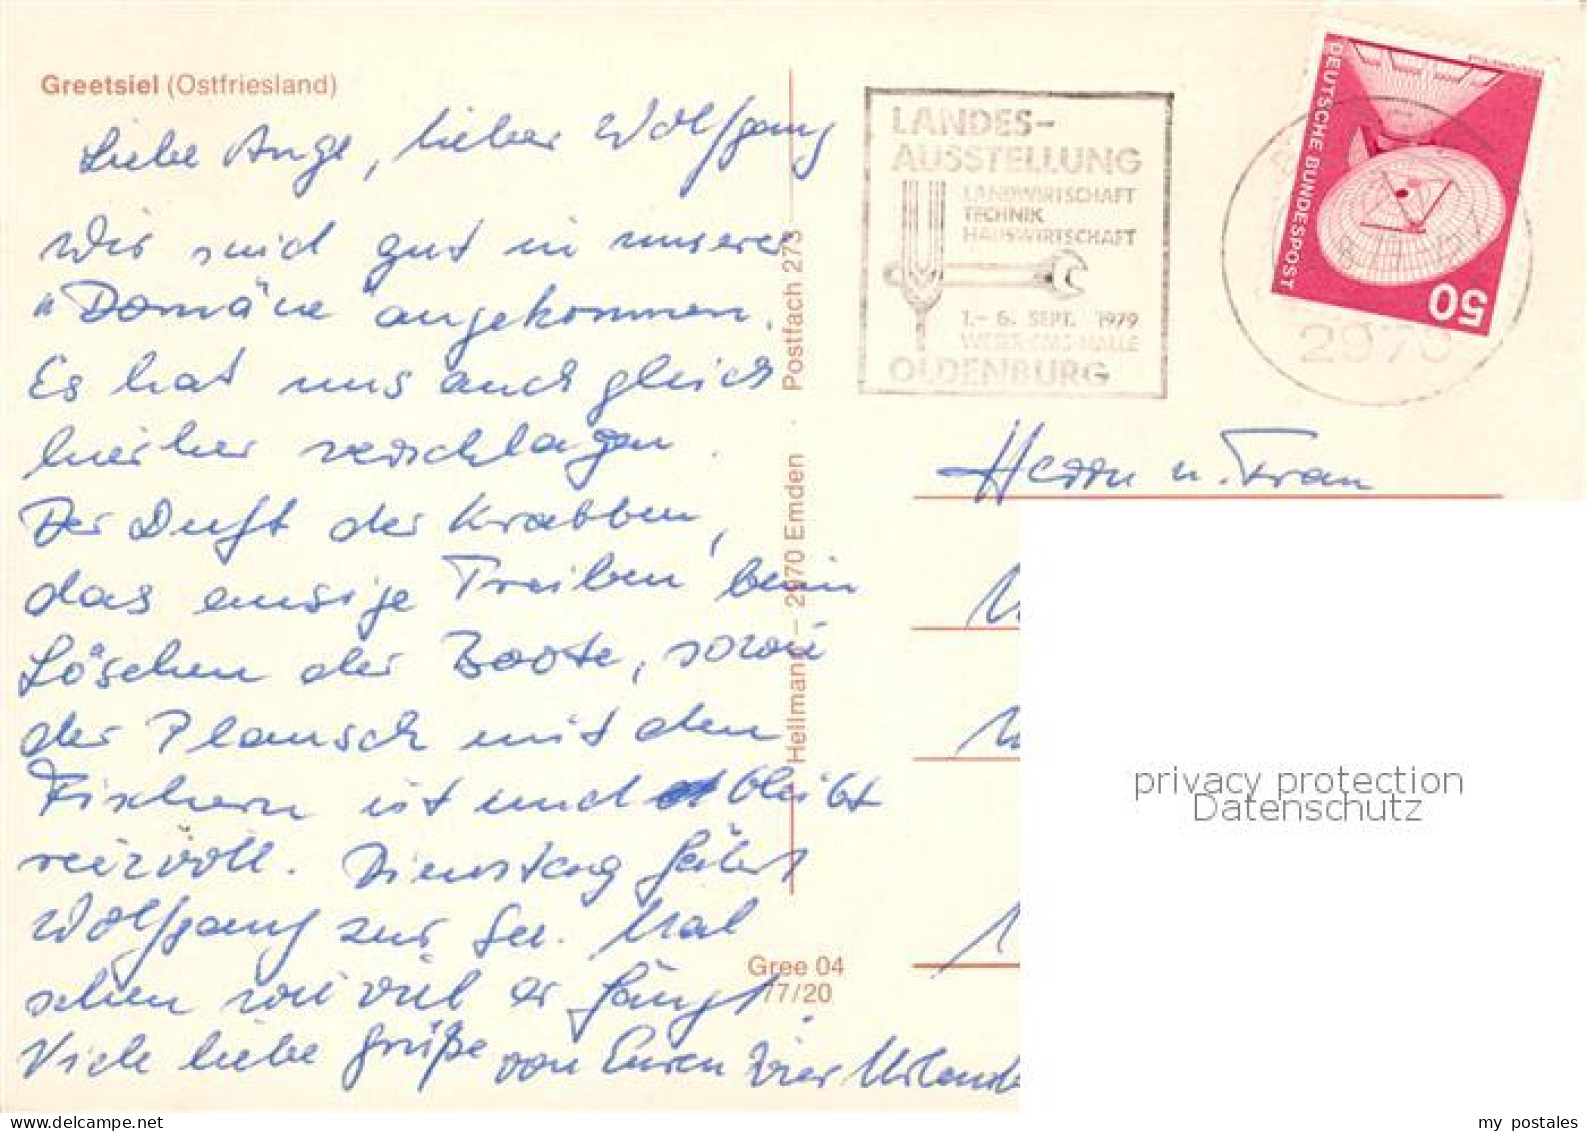 Greetsiel (Ostfriesland)
Liebe Ange, lieber Wolfgang
Wir sind gut in unserer
"Domäne angekommen.
Es hat uns auch gleich
hierher verschlagen.
Der Duft der Krabben,
das emsige Treiben beim
Löschen der Boote, sowie
der Plausch mit den
Fischern ist und bleibt
reizvoll. Dienstag fährt
Wolfgang zur See. Mal
sehen wie viel er fängt.
Viele liebe Grüße von Euren vier
Hellmann – 2970 Emden Postfach 273
Gree 04
77/20
LANDES-
AUSSTELLUNG
LANDWIRTSCHAFT
TECHNIK
HAUSWIRTSCHAFT
1.– 6. SEPT. 1979
WESER-EMS-HALLE
OLDENBURG
DEUTSCHE BUNDESPOST
50
2970
Herrn u. Frau
privacy protection
Datenschutz
delcampe.net
my_postales